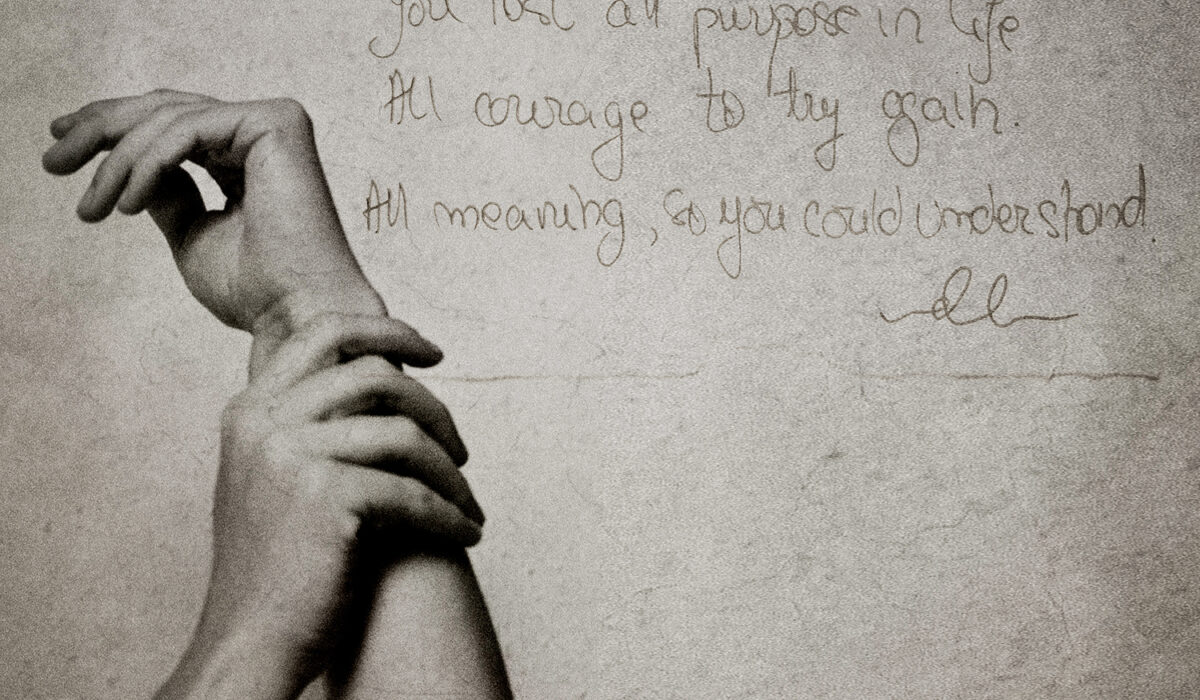 you lost all purpose in life
All courage to try again.
All meaning, so you could understand.